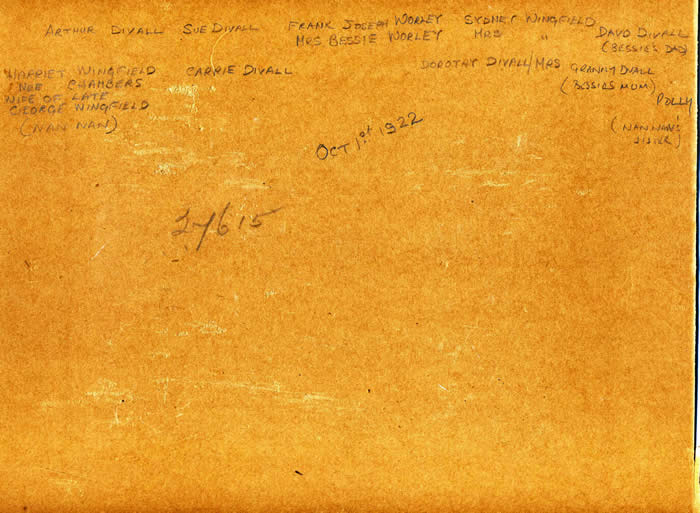 ARTHUR DIVALL SUE DIVALL FRANK JOSEPH WORLEY SYDNEY WINGFIELD
MRS BESSIE WORLEY MRS " DAVD DIVALL
(BESSIE'S DAD)
HARRIET WINGFIELD CARRIE DIVALL DOROTHY DIVALL/MRS GRANNY DVALL
NEE CHAMBERS (BESSIES MUM)
WIFE OF LATE POLLY
GEORGE WINGFIELD
(NAN NAN) (NAN NAN'S
SISTER)
OCT 1st 1922
27615